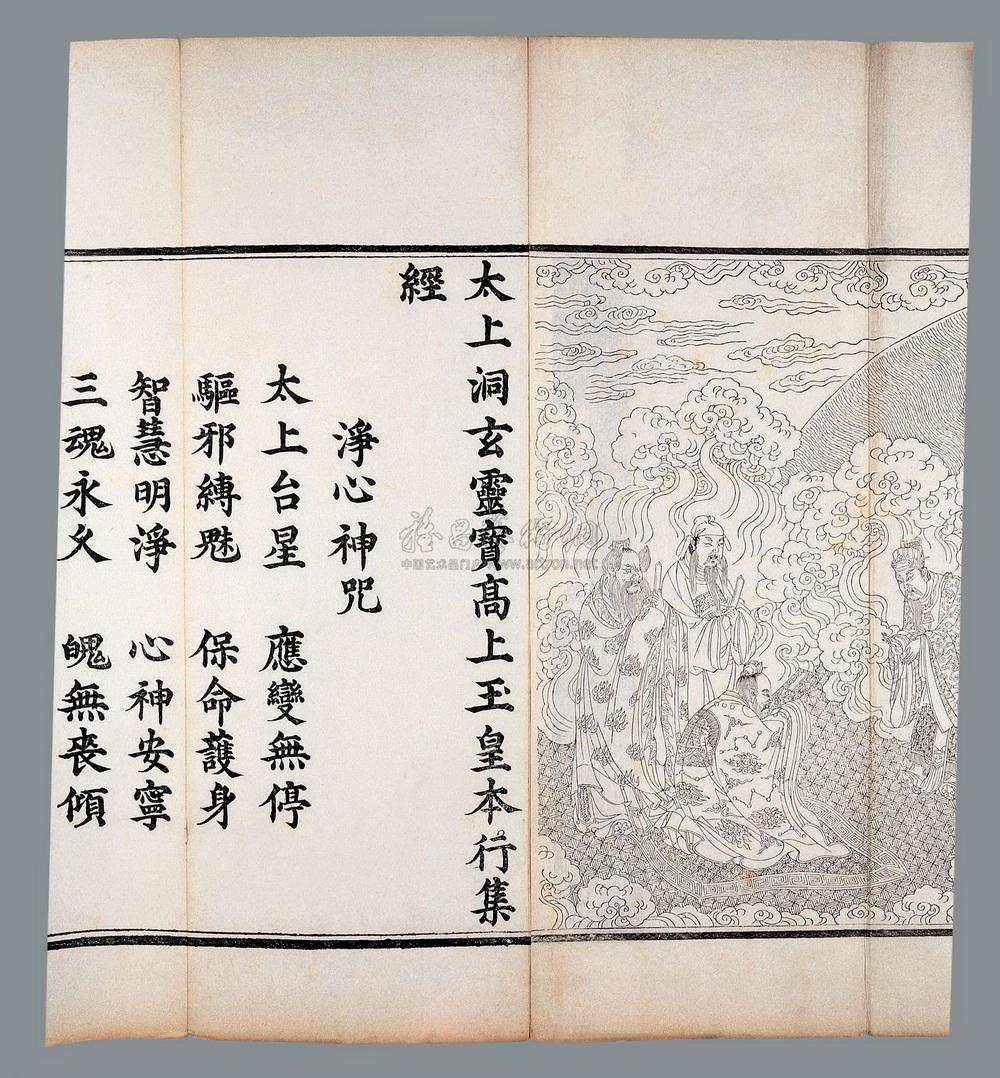 太上洞玄靈寶高上玉皇本行集
經
淨心神咒
太上台星 應變無停
驅邪縛魅 保命護身
智慧明淨 心神安寧
三魂永久 魄無喪傾
中国艺术品门户 www.artron.net